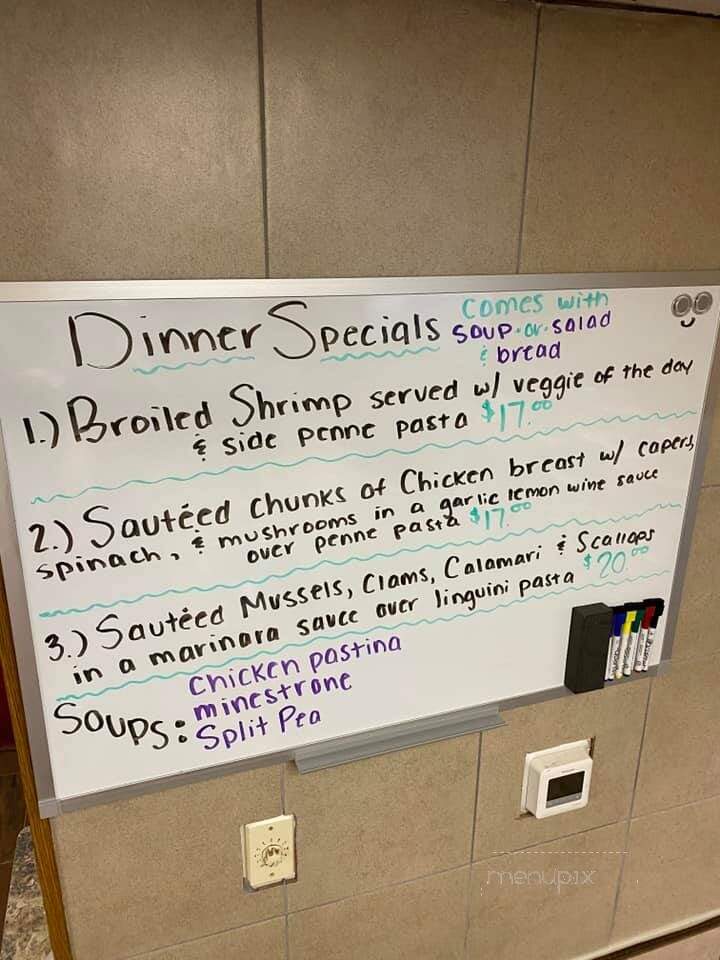 Dinner Specials comes with
soup or salad
& bread
1.) Broiled Shrimp served w/ veggie of the day
& side penne pasta $17.00
2.) Sautéed chunks of Chicken breast w/ capers,
spinach, & mushrooms in a garlic lemon wine sauce
over penne pasta $17.00
3.) Sautéed Mussels, Clams, Calamari & Scallops
in a marinara sauce over linguini pasta $20.00
Soups: Chicken pastina
minestrone
Split Pea
menupix